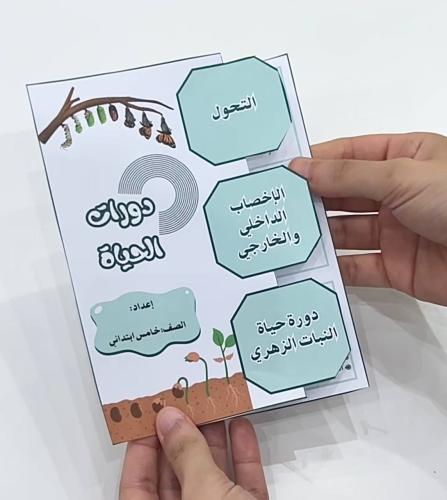 التحول
دورات
الحياة
الإخصاب
الداخلي
والخارجي
إعداد:
الصف: خامس ابتدائي
دورة حياة
النبات الزهري